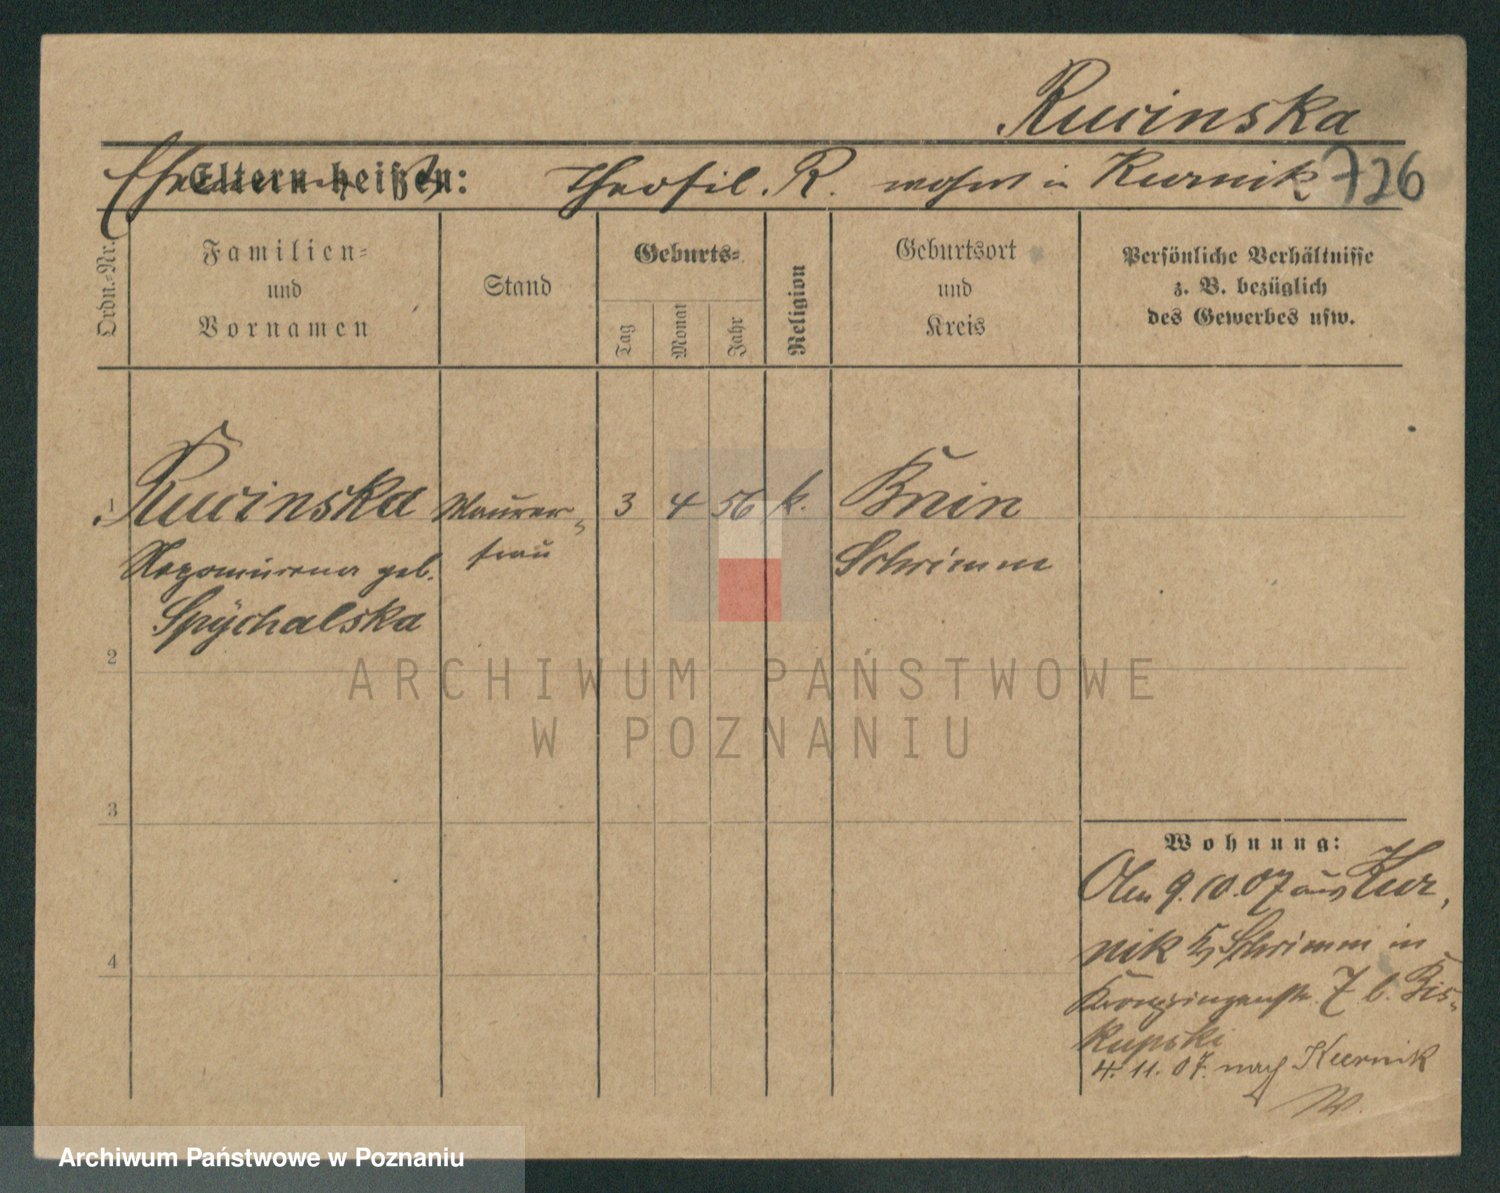 Rucinska
Eltern heißen: Theofil. R. wohnt in Kurnik 726
Ordn.-Nr.
Familien-
und
Vornamen
Stand
Geburts-
Tag
Monat
Jahr
Religion
Geburtsort
und
Kreis
Persönliche Verhältnisse
z. B. bezüglich
des Gewerbes usw.
1 Rucinska Maurer- 3 4 56 k. Bnin
Nepomucena geb. frau Schrimm
Spÿchalska
2
ARCHIWUM PAŃSTWOWE
W POZNANIU
3
Wohnung:
9.10.07 aus Kur,
nik Schrimm in
Kronprinzenstr. 7 b. Bis-
kupski
4
4.11.07. nach Kurnik
Archiwum Państwowe w Poznaniu